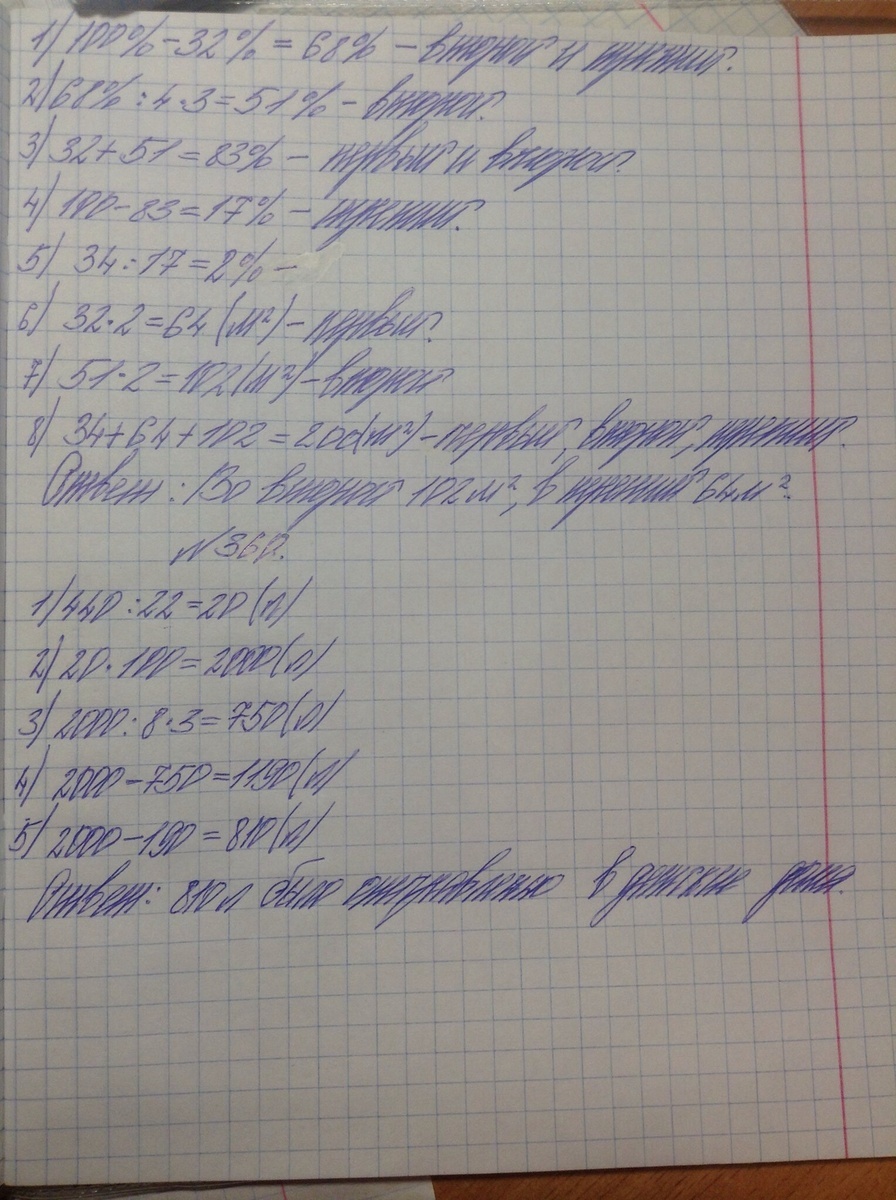 1) 100% - 32% = 68% - второй и третий.
2) 68% : 4 · 3 = 51% - второй.
3) 32 + 51 = 83% - первый и второй.
4) 100 - 83 = 17% - третий.
5) 34 : 17 = 2% -
6) 32 · 2 = 64 (м²) - первый.
7) 51 · 2 = 102 (м²) - второй
8) 34 + 64 + 102 = 200 (м²) - первый, второй, третий.
Ответ: Во второй 102 м², в третий 64 м².
№ 360.
1) 440 : 22 = 20 (л)
2) 20 · 100 = 2000 (л)
3) 2000 : 8 · 3 = 750 (л)
4) 2000 - 750 = 1190 (л)
5) 2000 - 190 = 810 (л)
Ответ: 810 л было отправлено в детские дома.